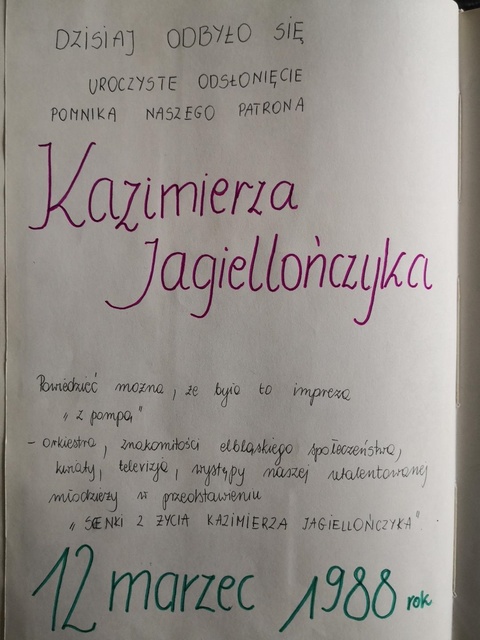 DZISIAJ ODBYŁO SIĘ
UROCZYSTE ODSŁONIĘCIE
POMNIKA NASZEGO PATRONA
Kazimierza
Jagiellończyka
Powiedzieć można, że była to impreza
„z pompą"
- orkiestra, znakomitości elbląskiego społeczeństwa,
kwiaty, telewizja, występy naszej utalentowanej
młodzieży w przedstawieniu
„SCENKI Z ŻYCIA KAZIMIERZA JAGIELLOŃCZYKA".
12 marzec 1988 rok